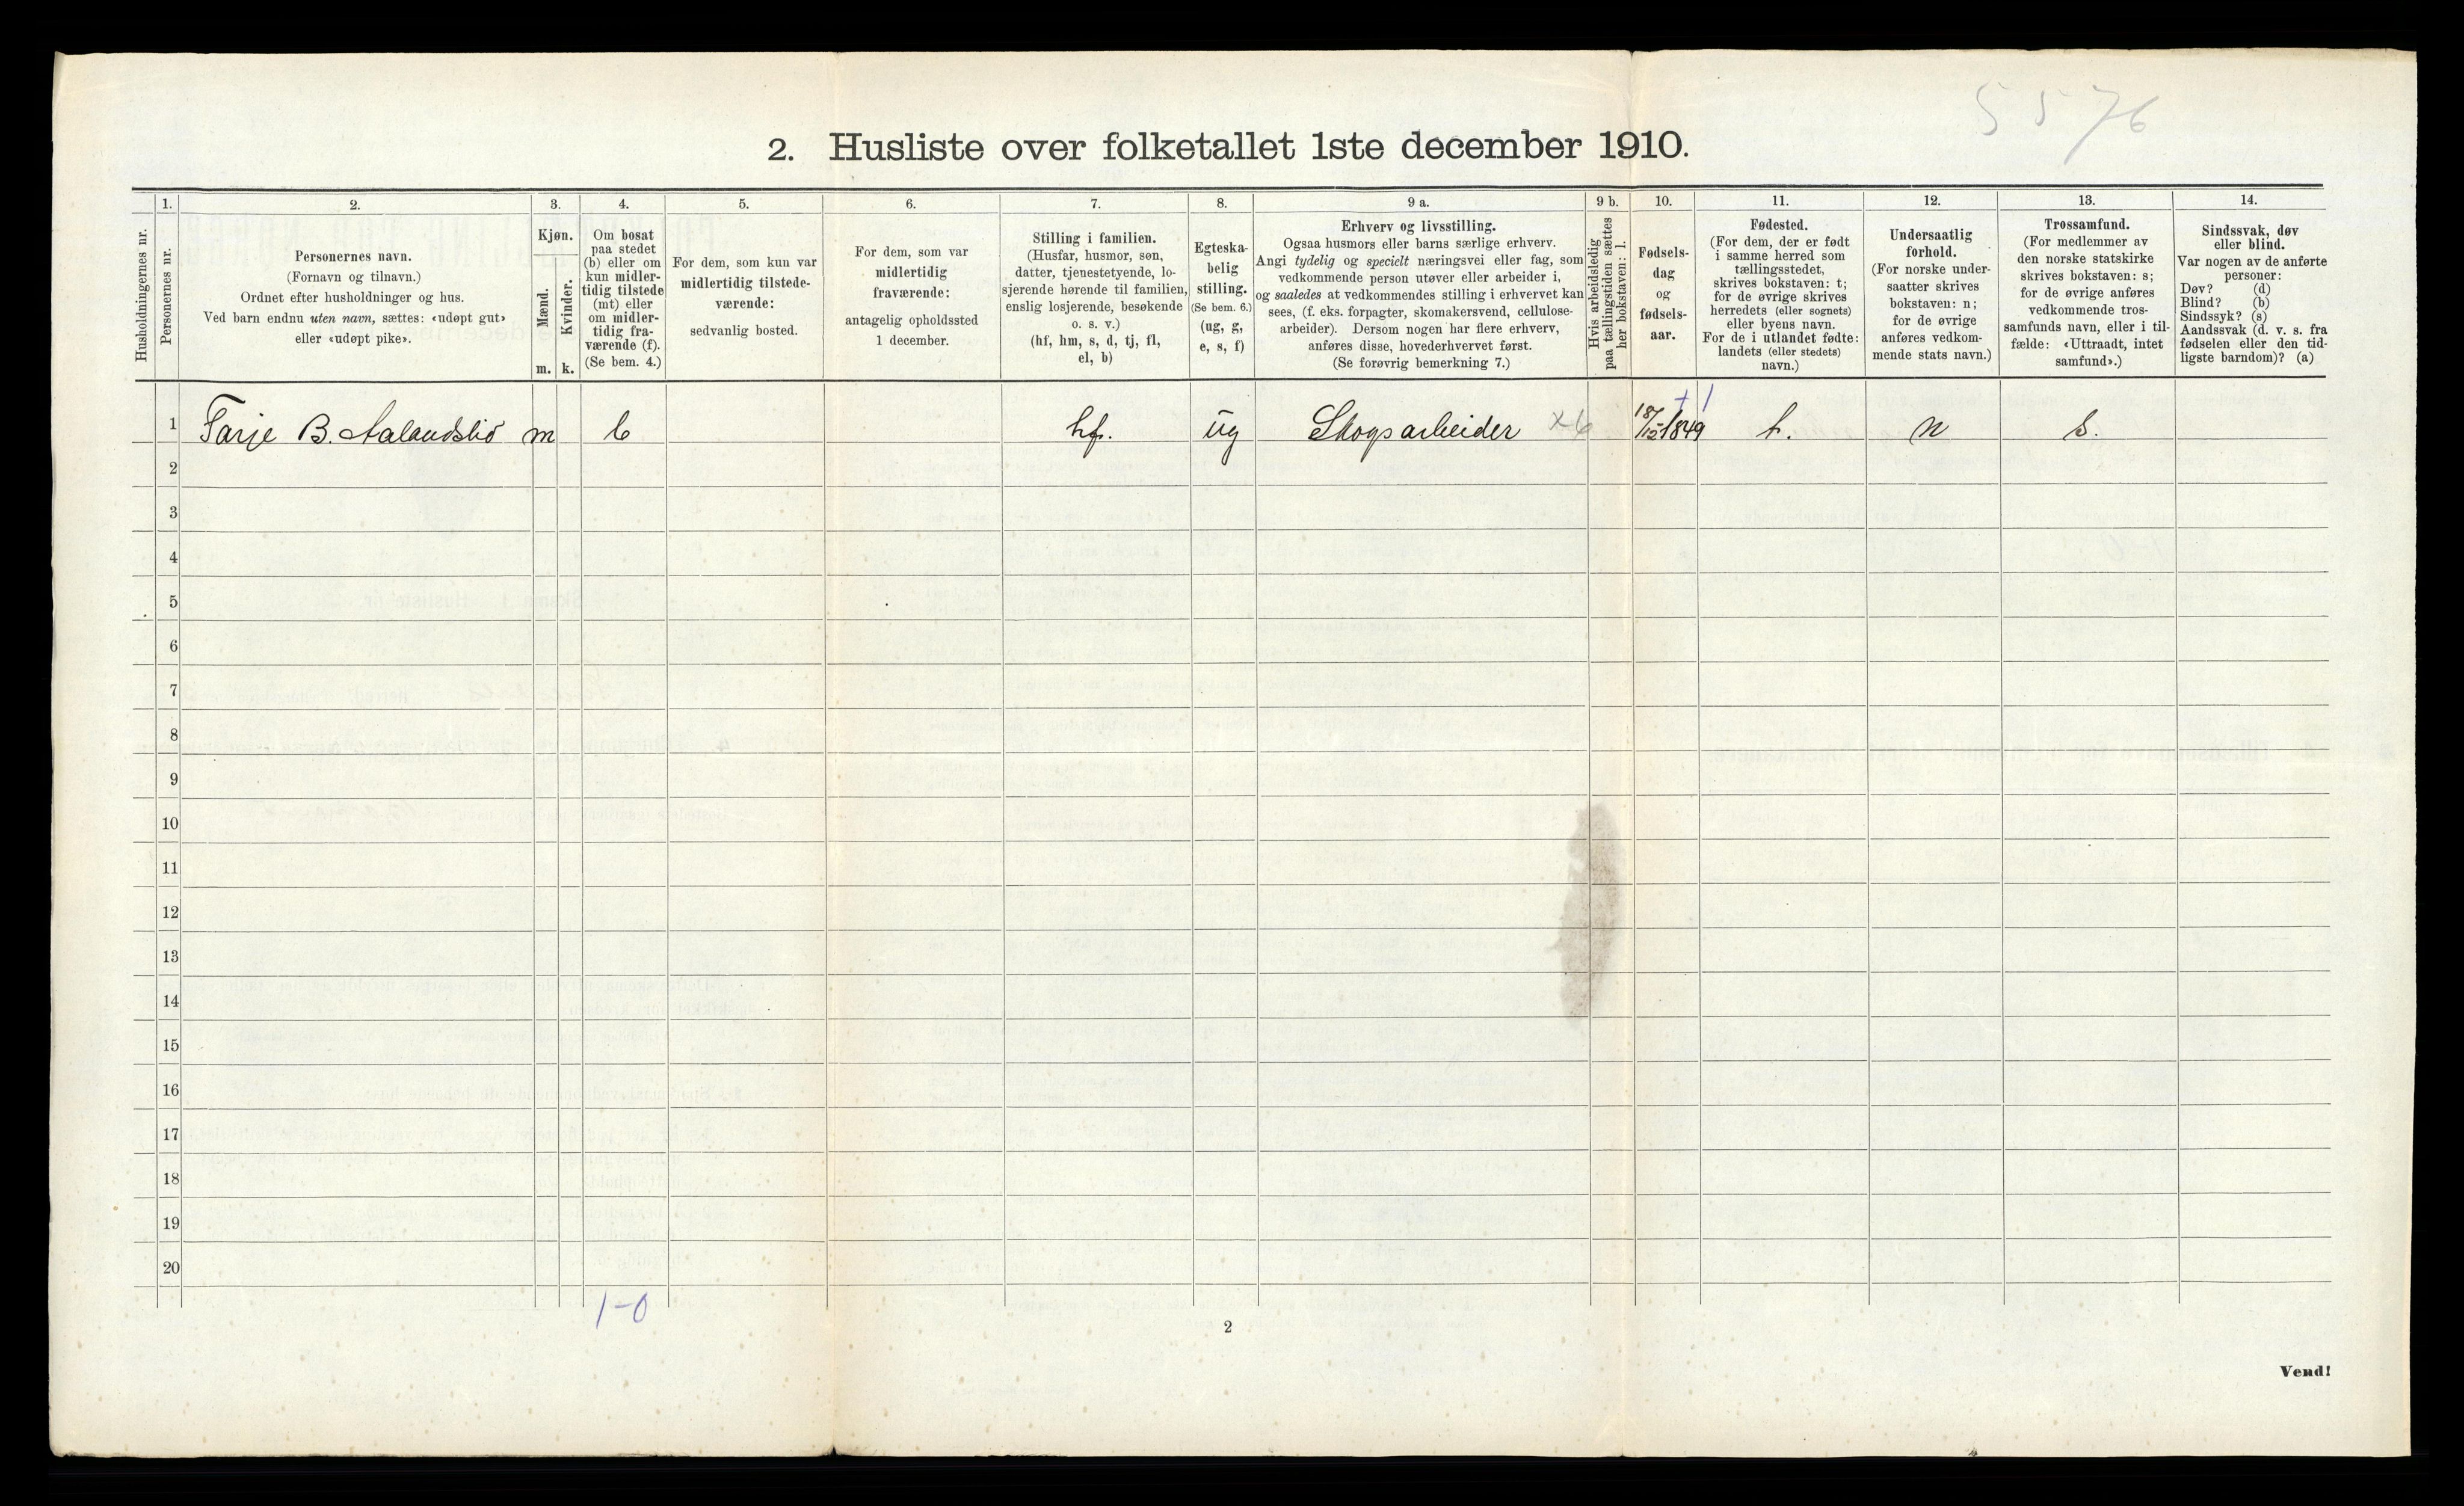 5576
2. Husliste over folketallet 1ste december 1910.
Husholdningernes nr.
1.
Personernes nr.
2.
Personernes navn.
(Fornavn og tilnavn.)
Ordnet efter husholdninger og hus.
Ved barn endnu uten navn, sættes: «udøpt gut»
eller «udøpt pike».
3.
Kjøn.
Mænd.
Kvinder.
m. k.
4.
Om bosat
paa stedet
(b) eller om
kun midler-
tidig tilstede
(mt) eller
om midler-
tidig fra-
værende (f).
(Se bem. 4.)
5.
For dem, som kun var
midlertidig tilstede-
værende:
sedvanlig bosted.
6.
For dem, som var
midlertidig
fraværende:
antagelig opholdssted
1 december.
7.
Stilling i familien.
(Husfar, husmor, søn,
datter, tjenestetyende, lo-
sjerende hørende til familien,
enslig losjerende, besøkende
o. s. v.)
(hf, hm, s, d, tj, fl,
el, b)
8.
Egteska-
belig
stilling.
(Se bem. 6.)
(ug, g,
e, s, f)
9 a.
Erhverv og livsstilling.
Ogsaa husmors eller barns særlige erhverv.
Angi tydelig og specielt næringsvei eller fag, som
vedkommende person utøver eller arbeider i,
og saaledes at vedkommendes stilling i erhvervet kan
sees, (f. eks. forpagter, skomakersvend, cellulose-
arbeider). Dersom nogen har flere erhverv,
anføres disse, hovederhvervet først.
(Se forøvrig bemerkning 7.)
9 b.
Hvis arbeidsledig
paa tællingstiden sættes
her bokstaven: l.
10.
Fødsels-
dag
og
fødsels-
aar.
11.
Fødested.
(For dem, der er født
i samme herred som
tællingsstedet,
skrives bokstaven: t;
for de øvrige skrives
herredets (eller sognets)
eller byens navn.
For de i utlandet fødte:
landets (eller stedets)
navn.)
12.
Undersaatlig
forhold.
(For norske under-
saatter skrives
bokstaven: n;
for de øvrige
anføres vedkom-
mende stats navn.)
13.
Trossamfund.
(For medlemmer av
den norske statskirke
skrives bokstaven: s;
for de øvrige anføres
vedkommende tros-
samfunds navn, eller i til-
fælde: «Uttraadt, intet
samfund».)
14.
Sindssvak, døv
eller blind.
Var nogen av de anførte
personer:
Døv? (d)
Blind? (b)
Sindssyk? (s)
Aandssvak (d. v. s. fra
fødselen eller den tid-
ligste barndom)? (a)
1 Tarje B. Aalandslid m b hf. ug Skogsarbeider x6 18/12 1849 t. n s.
2
3
4
5
6
7
8
9
10
11
12
13
14
15
16
17
18
19
20
1-0
2
Vend!